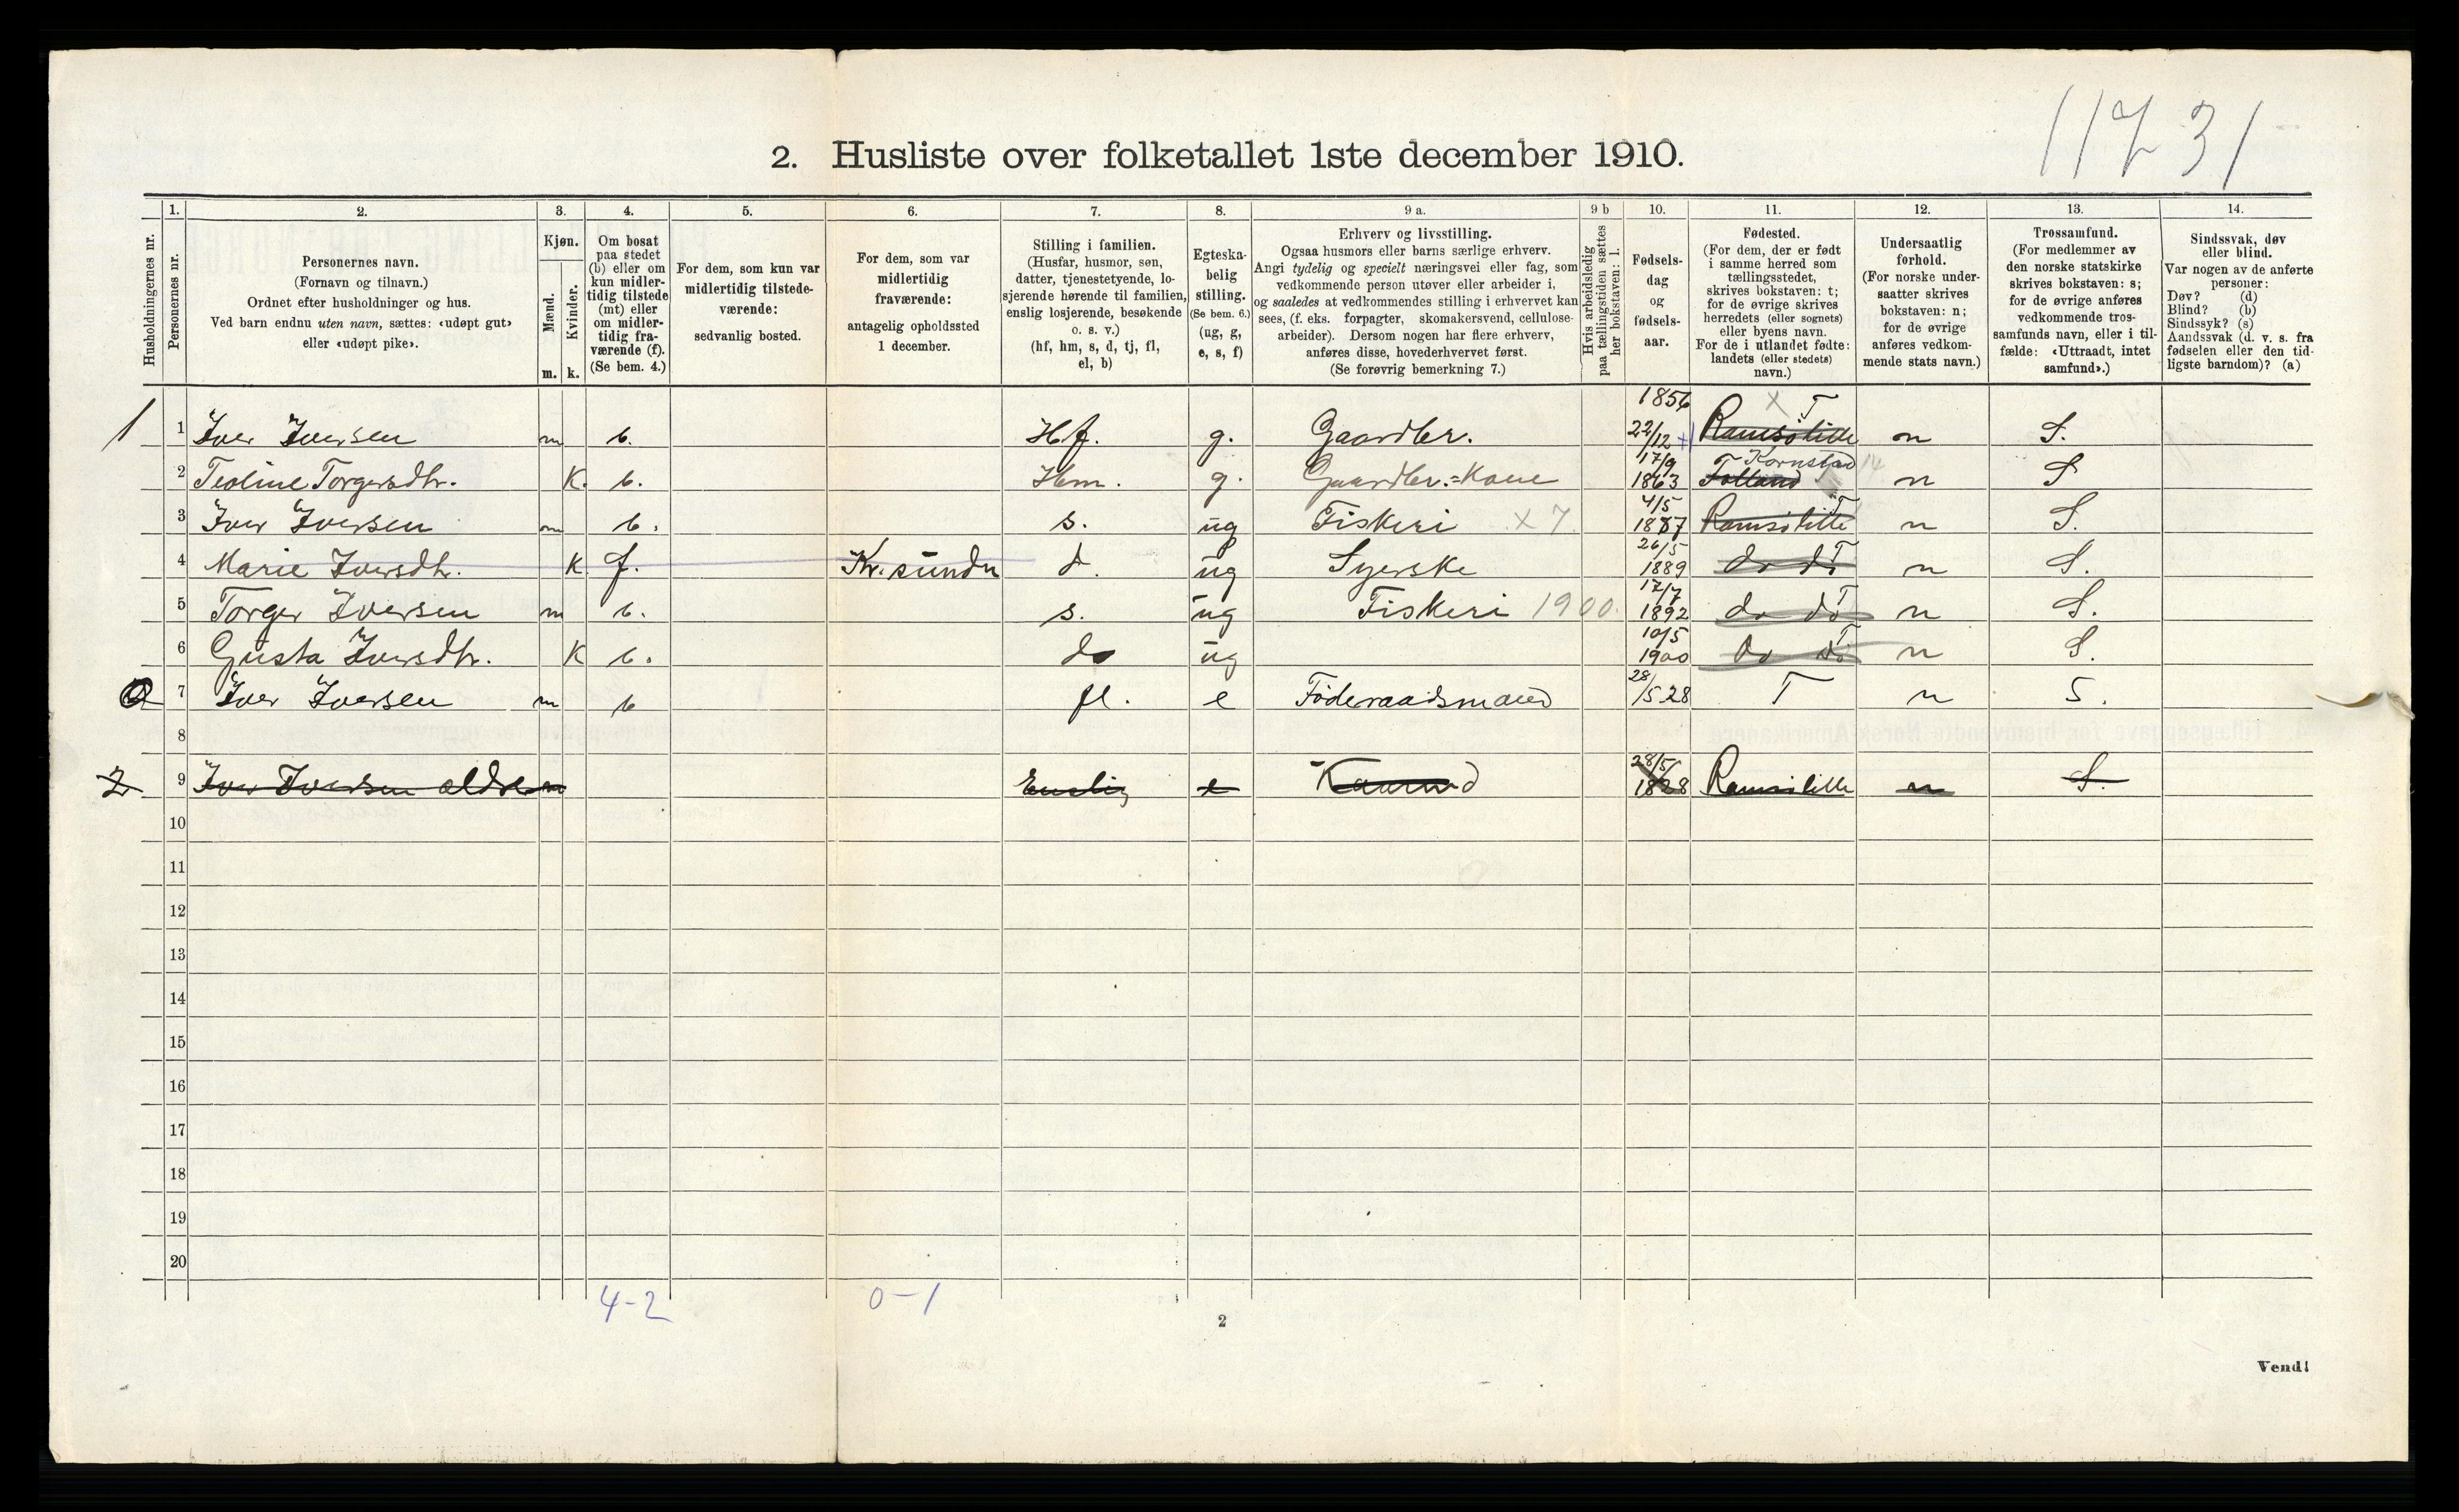 11731
2. Husliste over folketallet 1ste december 1910.
Husholdningernes nr.
1. Personernes nr.
2. Personernes navn.
(Fornavn og tilnavn.)
Ordnet efter husholdninger og hus.
Ved barn endnu uten navn, sættes: «udøpt gut»
eller «udøpt pike».
3. Kjøn.
Mænd. Kvinder.
m. k.
4. Om bosat
paa stedet
(b) eller om
kun midler-
tidig tilstede
(mt) eller
om midler-
tidig fra-
værende (f).
(Se bem. 4.)
5. For dem, som kun var
midlertidig tilstede-
værende:
sedvanlig bosted.
6. For dem, som var
midlertidig
fraværende:
antagelig opholdssted
1 december.
7. Stilling i familien.
(Husfar, husmor, søn,
datter, tjenestetyende, lo-
sjerende hørende til familien,
enslig losjerende, besøkende
o. s. v.)
(hf, hm, s, d, tj, fl,
el, b)
8. Egteska-
belig
stilling.
(Se bem. 6.)
(ug, g,
e, s, f)
9 a. Erhverv og livsstilling.
Ogsaa husmors eller barns særlige erhverv.
Angi tydelig og specielt næringsvei eller fag, som
vedkommende person utøver eller arbeider i,
og saaledes at vedkommendes stilling i erhvervet kan
sees, (f. eks. forpagter, skomakersvend, cellulose-
arbeider). Dersom nogen har flere erhverv,
anføres disse, hovederhvervet først.
(Se forøvrig bemerkning 7.)
9 b Hvis arbeidsledig
paa tællingstiden sættes
her bokstaven: l.
10. Fødsels-
dag
og
fødsels-
aar.
11. Fødested.
(For dem, der er født
i samme herred som
tællingsstedet,
skrives bokstaven: t;
for de øvrige skrives
herredets (eller sognets)
eller byens navn.
For de i utlandet fødte:
landets (eller stedets)
navn.)
12. Undersaatlig
forhold.
(For norske under-
saatter skrives
bokstaven: n;
for de øvrige
anføres vedkom-
mende stats navn.)
13. Trossamfund.
(For medlemmer av
den norske statskirke
skrives bokstaven: s;
for de øvrige anføres
vedkommende tros-
samfunds navn, eller i til-
fælde: «Uttraadt, intet
samfund».)
14. Sindssvak, døv
eller blind.
Var nogen av de anførte
personer:
Døv? (d)
Blind? (b)
Sindssyk? (s)
Aandssvak (d. v. s. fra
fødselen eller den tid-
ligste barndom)? (a)
1 1 Iver Iversen m b. Hf. g. Gaardbr. 1856 22/12 Ramsölille x T n S.
2 Teoline Torgersdtr. K. b. Hm. g. Gaardbr.=Kone 17/9 1863 Folland Kornstad 14 n S
3 Iver Iversen m b. s. ug Fiskeri x 7. 4/5 1887 Ramsölille T n S.
4 Marie Iversdtr. K f. Kr.sundn d. ug Syerske 26/5 1889 do do T n S.
5 Torger Iversen m b. s. ug Fiskeri 1900. 17/7 1892 do do T n S.
6 Gusta Iversdtr. K b. d ug 10/5 1900 do do T n S.
7 Iver Iversen m b fl. e Föderaadsmand 28/5 28 T n S.
8
2 9 Iver Iversen eldre m Enslig e Kaarmd 28/5 1828 Ramsölille n S.
10
11
12
13
14
15
16
17
18
19
20
4-2 0-1
2
Vend!